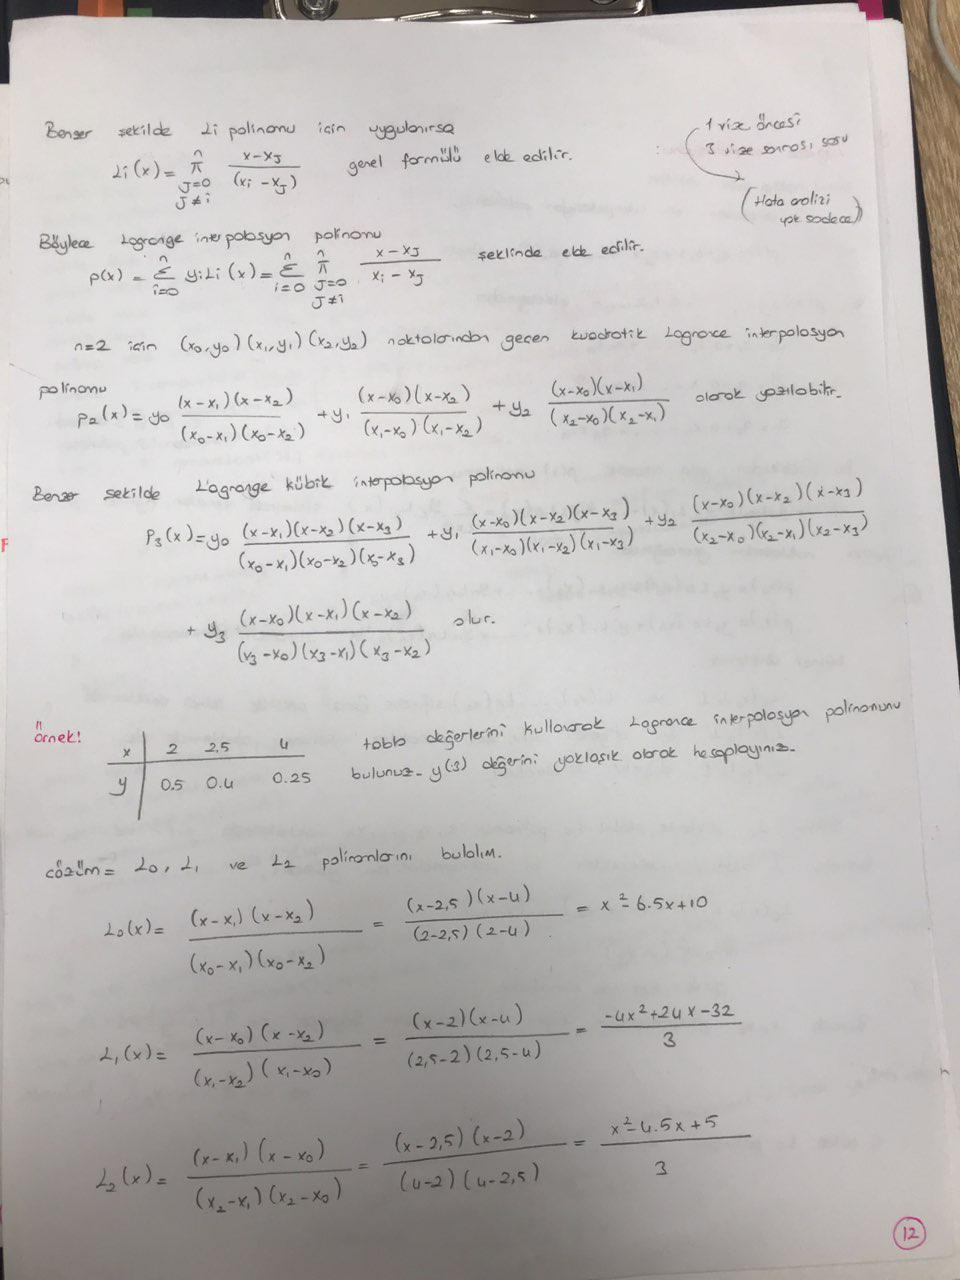 Benzer şekilde Li polinomu için uygulanırsa
Li(x) = n π J=0 J≠i (x-xJ)/(xi-xJ) genel formülü elde edilir.
1 vize öncesi
3 vize sonrası soru
(Hata analizi yok sadece)
Böylece Lagrange interpolasyon polinomu
p(x) = n Σ i=0 yiLi(x) = n Σ i=0 n π J=0 J≠i (x-xJ)/(xi-xJ) şeklinde elde edilir.
n=2 için (x0,y0) (x1,y1) (x2,y2) noktalarından geçen kuadratik Lagrance interpolasyon
polinomu
P2(x) = y0 (x-x1)(x-x2)/(x0-x1)(x0-x2) + y1 (x-x0)(x-x2)/(x1-x0)(x1-x2) + y2 (x-x0)(x-x1)/(x2-x0)(x2-x1) olarak yazılabilir.
Benzer şekilde Lagrange kübik interpolasyon polinomu
P3(x) = y0 (x-x1)(x-x2)(x-x3)/(x0-x1)(x0-x2)(x0-x3) + y1 (x-x0)(x-x2)(x-x3)/(x1-x0)(x1-x2)(x1-x3) + y2 (x-x0)(x-x2)(x-x3)/(x2-x0)(x2-x1)(x2-x3)
+ y3 (x-x0)(x-x1)(x-x2)/(x3-x0)(x3-x1)(x3-x2) olur.
Örnek!
x 2 2,5 4
y 0.5 0.4 0.25
tablo değerlerini kullanarak Lagrance interpolasyon polinomunu
bulunuz. y(3) değerini yaklaşık olarak hesaplayınız.
çözüm = L0, L1 ve L2 polinomlarını bulalım.
L0(x) = (x-x1)(x-x2)/(x0-x1)(x0-x2) = (x-2,5)(x-4)/(2-2,5)(2-4) = x²-6.5x+10
L1(x) = (x-x0)(x-x2)/(x1-x2)(x1-x0) = (x-2)(x-4)/(2,5-2)(2,5-4) = -4x²+24x-32/3
L2(x) = (x-x1)(x-x0)/(x2-x1)(x2-x0) = (x-2,5)(x-2)/(4-2)(4-2,5) = x²-4.5x+5/3
12